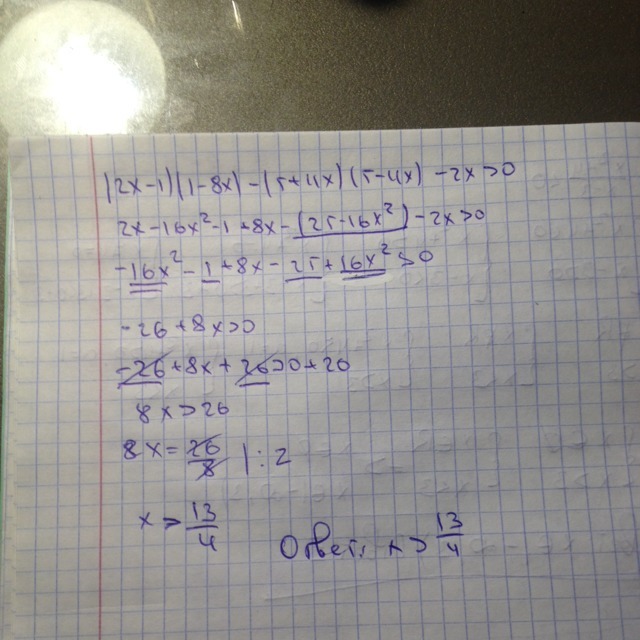 (2x-1)(1-8x)-(5+4x)(5-4x)-2x>0
2x-16x²-1+8x-(25-16x²)-2x>0
-16x²-1+8x-25+16x²>0
-26+8x>0
-26+8x+26>0+26
8x>26
8x=26/8 |:2
x>13/4
Ответ: x>13/4